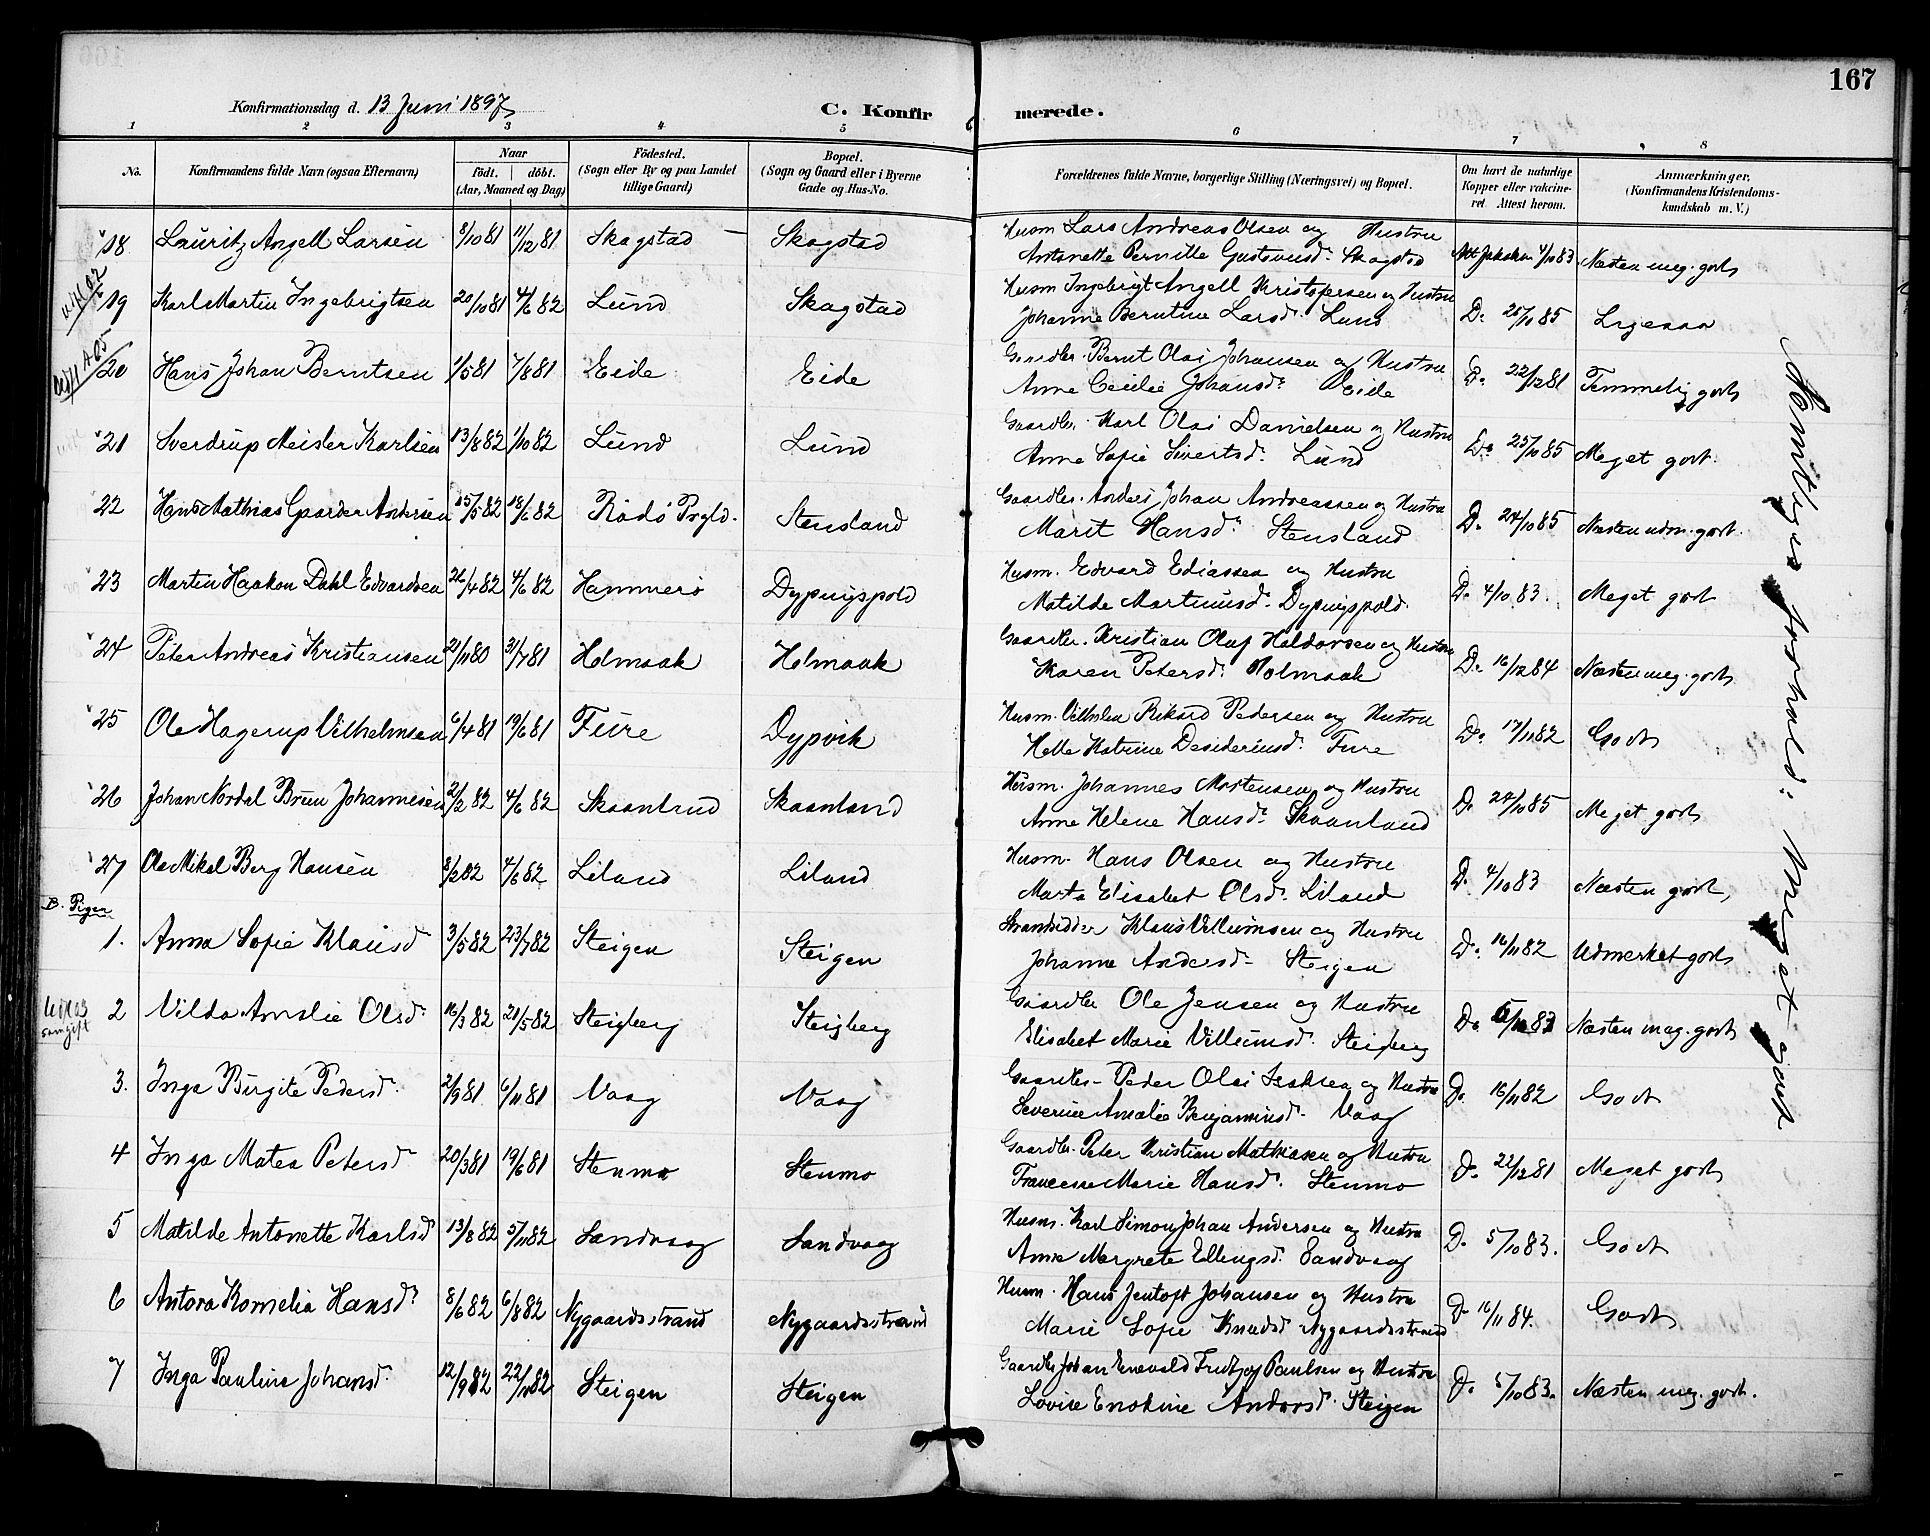 167
Konfirmationsdag d. 13 Juni 1897
C. Konfirmerede.
1 2 3 4 5 6 7 8
No.
Konfirmandens fulde Navn (ogsaa Efternavn)
Naar
födt. döbt.
(Aar, Maaned og Dag)
Födested.
(Sogn eller By og paa Landet
tillige Gaard)
Bopæl.
(Sogn og Gaard eller i Byerne
Gade og Hus-No.
Forældrenes fulde Navne, borgerlige Stilling (Næringsvei) og Bopæl.
Om havt de naturlige
Kopper eller vakcine-
ret. Attest herom.
Anmærkninger,
(Konfirmandens Kristendoms-
kundskab m. V.)
18 Lauritz Angell Larsen 8/10 81 11/12 81 Skagstad Skagstad Husm Lars Andreas Olsen og Hustru
Antonette Pernille Gustavusd. Skagstad 4/10 83 Næsten meg. godt
19 Karl Martin Ingebrigtsen 20/10 81 4/6 82 Lund Skagstad Husm Ingebrigt Angell Kristofersen og Hustru
Johanne Berntine Larsd. Lund Do 25/10 85 Ligesaa
20 Hans Johan Berntsen 1/5 81 7/8 81 Eide Eide Gaardbr. Bernt Olai Johansen og Hustru
Anne Cecilie Johansd. Eide Do 22/12 81 Temmelig godt
21 Sverdrup Meisler Karlsen 13/8 82 1/10 82 Lund Lund Gaardbr. Karl Olai Danielsen og Hustru
Anne Sofie Sivertsd. Lund Do 25/10 85 Meget godt.
22 Hans Mathias Gaarder Andersen 15/5 82 18/6 82 Rödö Prgld. Stensland Gaardbr. Anders Johan Andreassen og Hustru
Marit Hansd. Stensland Do 24/10 85 Næsten udm. godt.
23 Martin Haakon Dahl Edvardsen 26/4 82 4/6 82 Hammerö Dypingspold Husm. Edvard Ediassen og Hustru
Matilde Martinusd. Dypingspold Do 4/10 83. Meget godt
24 Peter Andreas Kristiansen 21/11 80 31/7 81 Holmaak Holmaak Gaardbr. Kristian Oluf Haldorsen og Hustru
Karen Petersd. Holmaak Do 16/12 84 Næsten meg. godt
25 Ole Hagerup Vilhelmsen 6/4 81 19/6 81 Fure Dypvik Husm. Vilhelm Rikard Pedersen og Hustru
Helle Katrine Desideriusd. Fure Do 17/11 82 Godt
26 Johan Nordal Brun Johannesen 2/2 82 4/6 82 Skaanland Skaanland Husm. Johannes Mortensen og Hustru
Anne Helene Hansd. Skaanland Do 24/10 85 Meget godt
27 Ole Mikal Berg Hansen 8/2 82 4/6 82 Liland Liland Husm. Hans Olsen og Hustru
Marta Elisabet Olsd. Liland Do 4/10 83 Næsten godt
B. Piger
1. Anna Sofie Klausd 3/5 82 23/7 82 Steigen Steigen Strandsidder Klaus Villumsen og Hustru
Johanne Andersd. Steigen Do 16/11 82 Udmerket godt
2 Vilda Amalie Olsd. 16/3 82 21/5 82 Steigberg Steigberg Gaardbr Ole Jensen og Hustru
Elisabet Marie Villumsd. Steigberg Do Næsten meg. godt
3. Inga Birgite Pedersd. 2/9 81 6/11 81 Vaag Vaag Gaardbr. Peder Olai Isaksen og Hustru
Severine Amalie Benjaminsd. Vaag Do 16/11 82 Godt
4 Inga Matea Petersd. 20/3 81 19/6 81 Stenmo Stenmo Gaardbr. Peter Kristian Mathiasen og Hustru
Marie Hansd. Stenmo Do 22/12 81 Meget godt
5 Matilde Antonette Karlsd 13/8 82 5/11 82 Sandvaag Sandvaag Husm. Karl Simon Johan Andersen og Hustru
Anne Margrete Ellingsd. Sandvaag Do 5/10 83. Godt
6 Antora Kornelia Hansd. 8/6 82 6/8 82 Nygaardsstrand Nygaardsstrand Husm. Hans Jentoft Johansen og Hustru
Marie Sofie Knudsd Nygaardsstrand Do 16/11 84. Godt
7 Inga Pauline Johansd. 12/9 82 22/11 82 Steigen Steigen Gaardbr Johan Enevald Fridtjof Paulsen og Hustru
Lovise Enokine Andorsd. Steigen Do 5/10 83. Næsten meg. godt.
Samtliges forhold: Meget godt